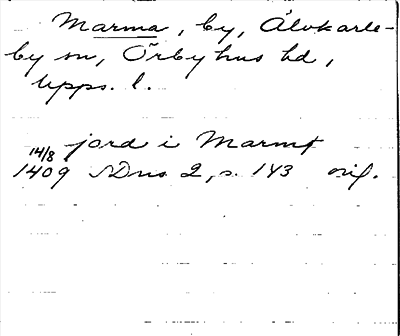 Marma, by, Älvkarle-
by sn, Örbyhus hd,
Upps. l.
jord i Marmꝭ
14/8
1409 SDns 2, s. 143 orig.